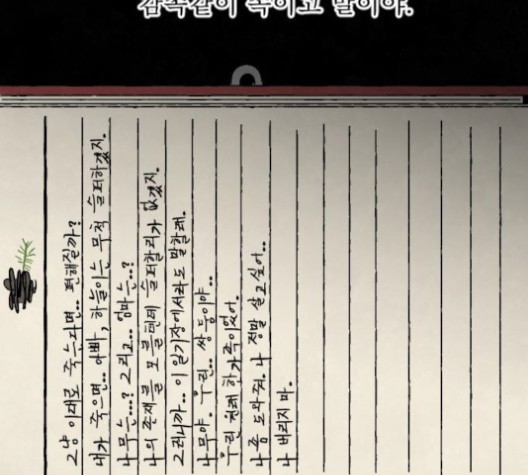 감쪽같이 속이고 말이야.
그냥 이대로 죽는다면.. 편해질까?
내가 죽으면.. 아빠, 하늘이는 무척 슬퍼하겠지.
나무는...? 그리고... 엄마는..?
나의 존재를 모를텐데 슬퍼할리가 없겠지.
그러니까.. 이 일기장에서라도 말할래.
나무야. 우린.. 쌍둥이야..
우린 원래 한가족이었어.
나 좀 도와줘. 나 정말 살고싶어..
나 버리지 마.